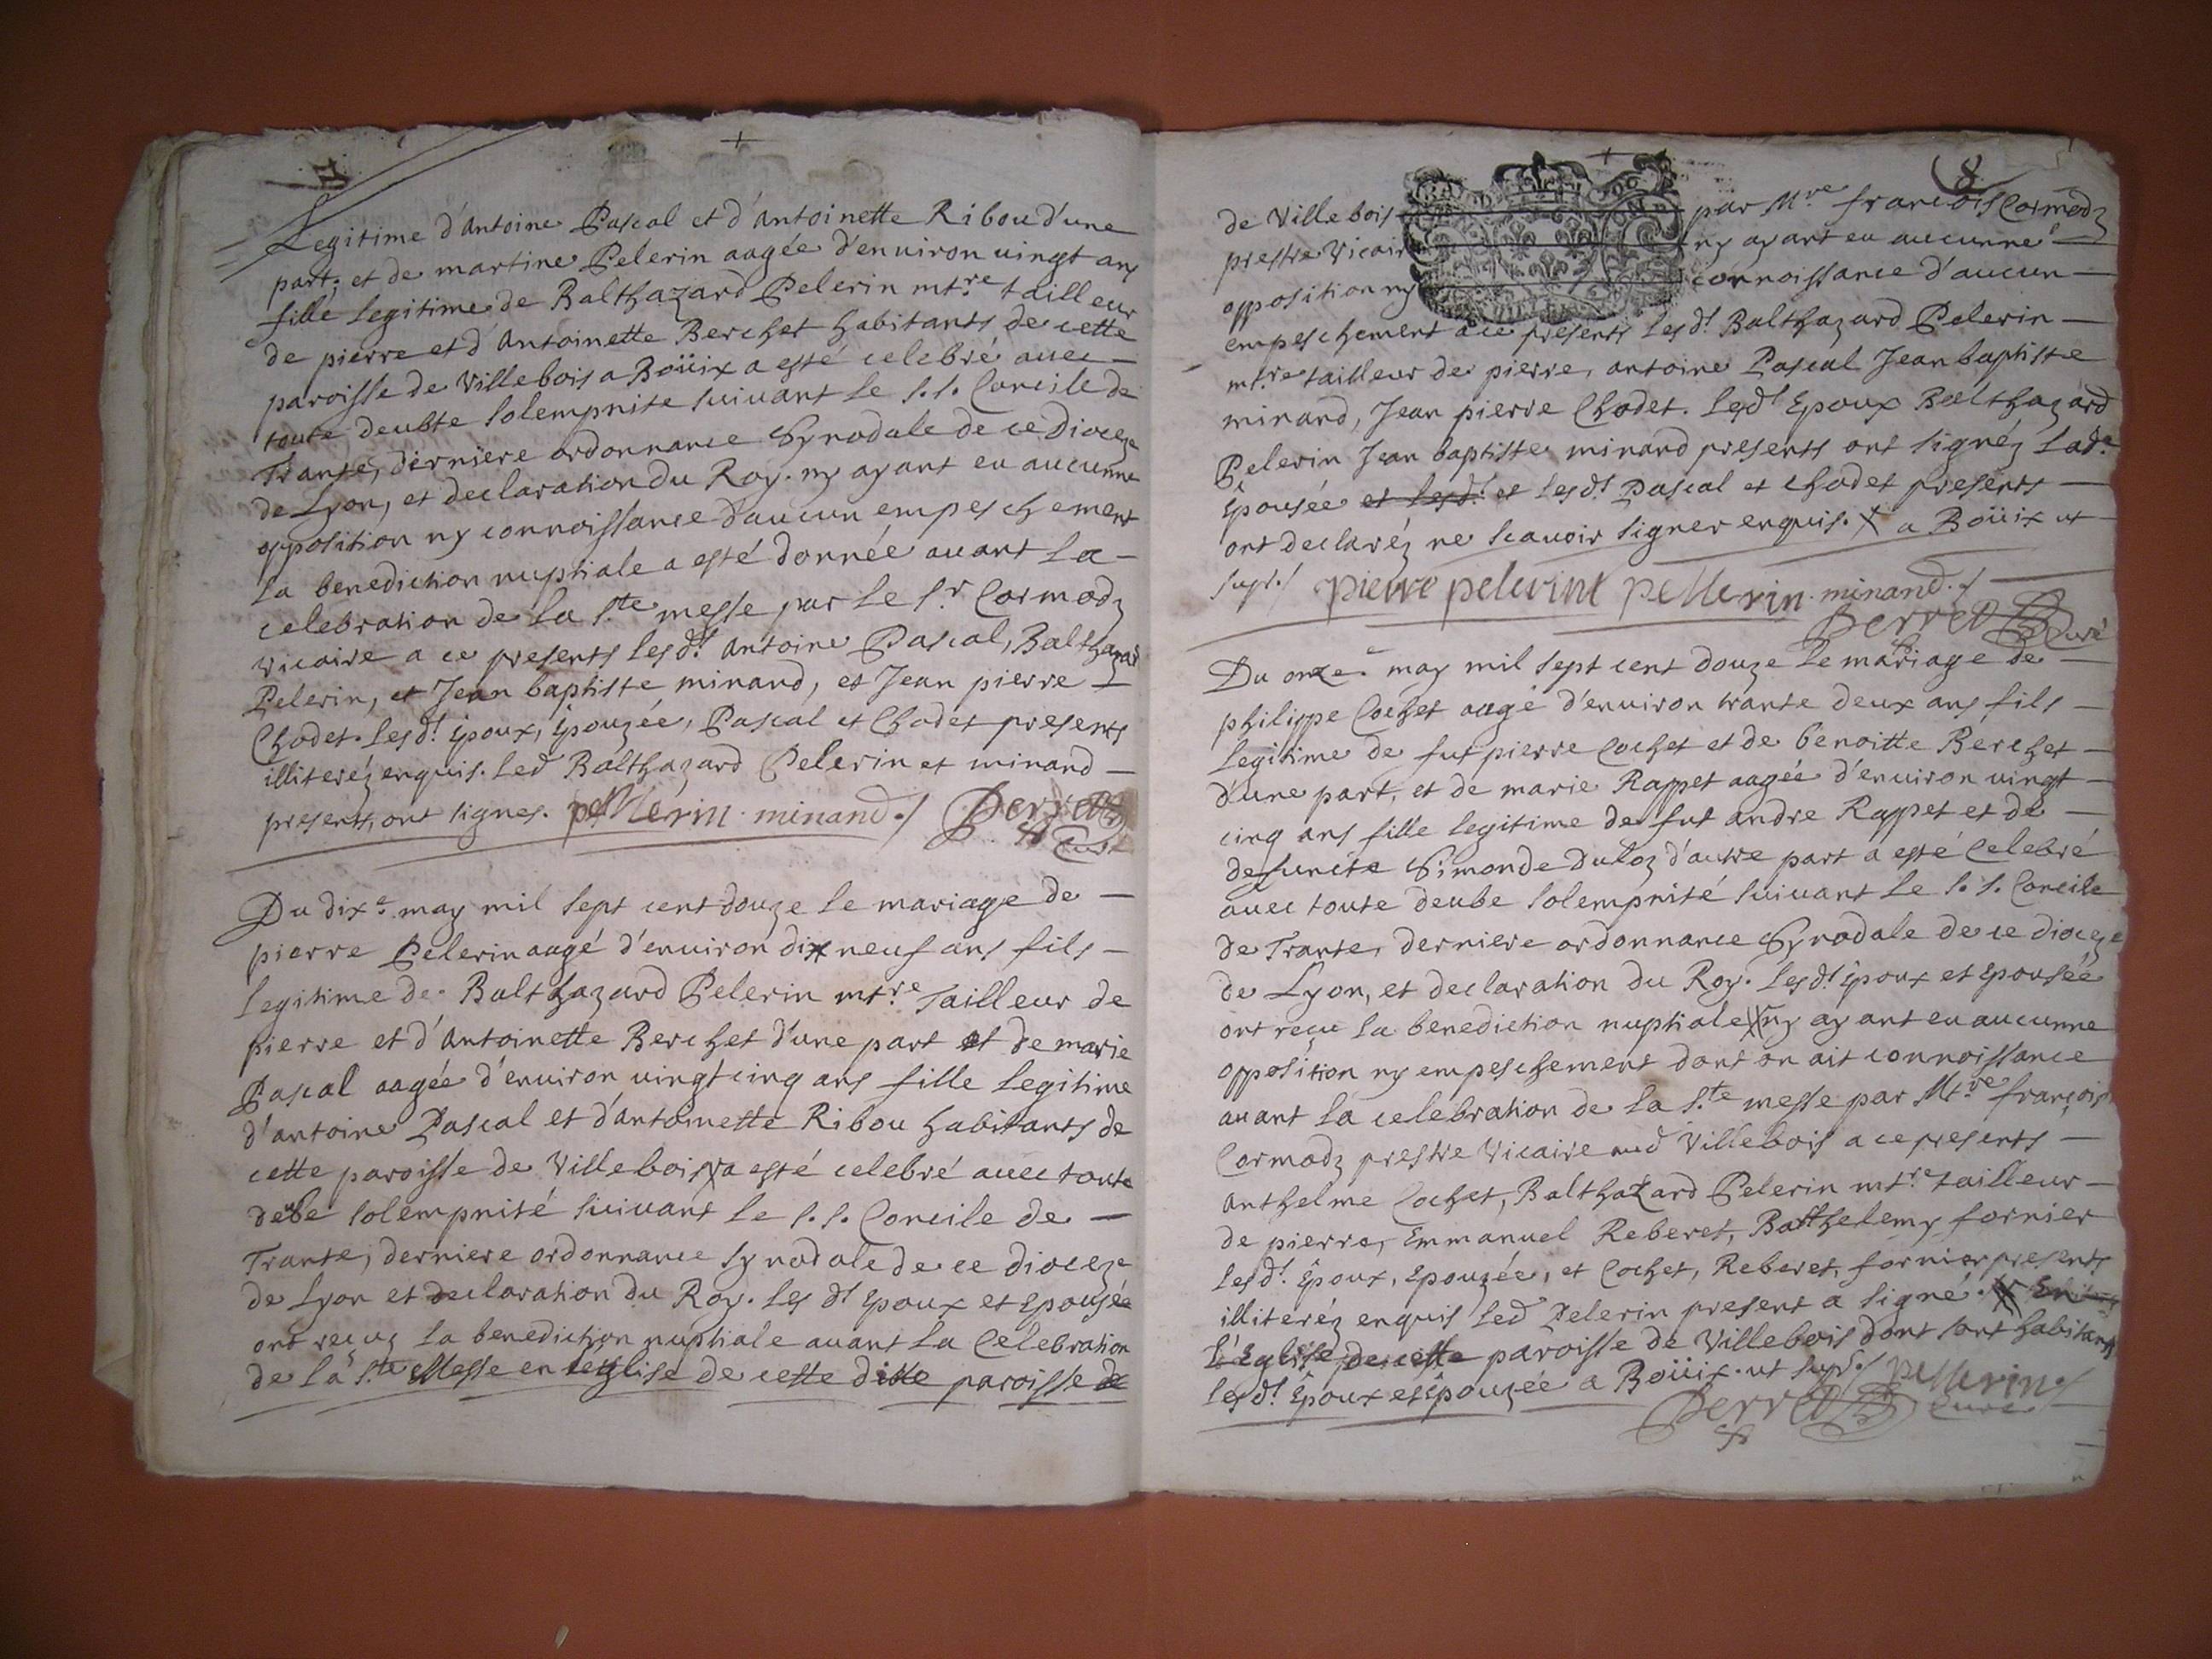 Legitime d'Antoine Pascal et d'Antoinette Ribou d'une
part, et de martine Pelerin aagée d'enuiron uingt ans
fille legitime de Balthazard Pelerin mtre tailleur
de pierre et d'Antoinette Berchet habitants de cette
paroisse de Villebois a Boüix a esté celebré auec
toute deubte solempnite suiuant le s.s. Concile de
Trante, derniere ordonnance Synodale de ce Dioceze
de Lyon, et declaration du Roy. ny ayant eu aucunne
opposition ny connoissance d'aucun empeschement
la benediction nuptiale a esté donnée auant la
celebration de la s.te messe par le s.r Cormodz
vicaire a ce presents lesd.t Antoine Pascal, Balthazard
Pelerin, et Jean baptiste minand, et Jean pierre
Chodet. lesd.t Epoux, Epouzée, Pascal et Chodet presents
illiteréz enquis. led Balthazard Pelerin et minand
presents, ont signes. pellerin minand ./ Perret
Curé
Du dix.e may mil sept cent douze le mariage de
pierre Pelerin aagé d'enuiron dix neuf ans fils
legitime de Balthazard Pelerin mtre Tailleur de
pierre et d'Antoinette Berchet d'une part et de marie
Pascal aagée d'enuiron uingt cinq ans fille legitime
d'antoine Pascal et d'Antoinette Ribou habitants de
cette paroisse de Villebois a esté celebré auec toute
deube solempnité suiuant le s.s. Concile de
Trante, derniere ordonnance synodale de ce dioceze
de Lyon et declaration du Roy. les d.t Epoux et Epousée
ont reçuz la benediction nuptiale auant la Celebration
de la s.te Messe en leglise de cette ditte paroisse de
8
de Villebois par M.re francois Cormodz
prestre Vicaire ny ayant eu aucunne
opposition ny connoissance d'aucun
empeschement a ce presents lesd.t Balthazard Pelerin
mt.re tailleur de pierre, antoine Pascal Jean baptiste
minand, Jean pierre Chodet. lesd.t Epoux Balthazard
Pelerin Jean baptiste minand presents ont signéz lad.e
Epousée et lesd.t et lesd.t Pascal et Chodet presents
ont declaréz ne scauoir signer enquis. a Boüix ut
sup./ pierre pelerint pellerin minand ./
Perret Curé
Du onze.e may mil sept cent douze le mariage de
philippe Cochet aagé d'enuiron trante deux ans fils
legitime de fut pierre Cochet et de benoitte Berchet
d'une part, et de marie Rappet aagée d'enuiron uingt
cinq ans fille legitime de fut andre Rappet et de
defuncte Simonde Duloz d'autre part a esté Celebré
auec toute deube solempnité suiuant le s.s. Concile
de Trante, derniere ordonnance Synodale de ce dioceze
de Lyon, et declaration du Roy. lesd.t Epoux et Epousée
ont reçu la benediction nuptiale ny ayant eu aucunne
opposition ny empeschement dont on ait connoissance
auant la celebration de la s.te messe par Mt.re françois
Cormodz prestre Vicaire aud Villebois a ce presents
Anthelme Cochet, Balthazard Pelerin mt.re tailleur
de pierre, Emmanuel Reberet, Barthelemy fornier
lesd.t Epoux, Epouzée, et Cochet, Reberet, fornier presents
illiteréz enquis led Pelerin present a signé. En
l'Eglise de cette paroisse de Villebois dont sont habitants
lesd.t Epoux et Epouzée a Boüix ut sup./ pellerin ./
Perret Curé